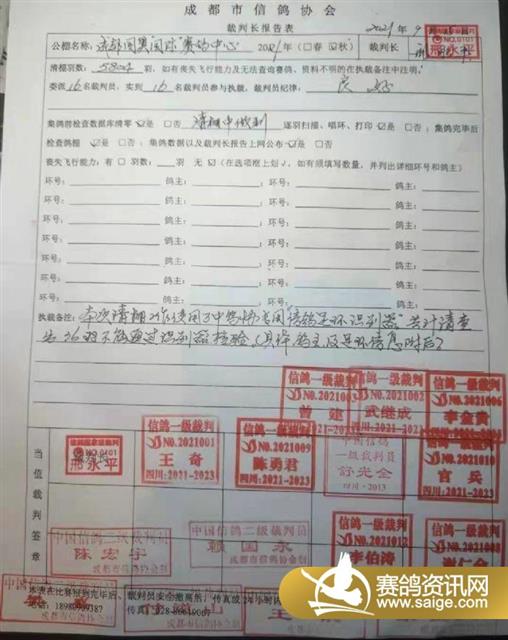 成都市信鸽协会
裁判长报告表
2021年9
NO.0101
邢永平
公棚名称: 成都国奥国际赛鸽中心 2021年(□春☑秋) 裁判长
清棚羽数: 5824 羽, 如有丧失飞行能力及无法查询赛鸽, 资料不明的在执裁备注中注明。
委派16名裁判员, 实到16名裁判员参与执裁, 裁判员纪律: 良好
集鸽前检查数据库清零☑是 □否 清棚中做到 逐羽扫描、唱环、打印☑是 □否; 集鸽完毕后
检查鸽棚 ☑是 □否; 集鸽数据以及裁判长报告上网公布☑是 □否
丧失飞行能力: 有 □ 羽数: 羽 无 ☑ (在选项框上划√, 如有须填写数量, 并列出详细环号和鸽主)
环号: 鸽主: 环号: 鸽主:
环号: 鸽主: 环号: 鸽主:
环号: 鸽主: 环号: 鸽主:
环号: 鸽主: 环号: 鸽主:
环号: 鸽主: 环号: 鸽主:
环号: 鸽主: 环号: 鸽主:
执裁备注: 本次清棚 使用了中鸽协专用信鸽足环识别器 共计清查
出26羽不能通过识别器检验 (具体鸽主及足环信息附后)
信鸽一级裁判
曾建
NO.2021002
武继成
信鸽一级裁判
NO.2021006
李金贵
当值裁判签章
NO.0101
邢永平
信鸽一级裁判
NO.2021001
王奇
四川:2021-2023
信鸽一级裁判
NO.2021009
陈勇君
四川:2021-2023
中国信鸽
一级裁判员
舒光全
四川·2013
NO.2021010
官兵
四川:2021-2023
中国信鸽二级裁判员
陈宏宇
成都市信鸽协会制
中国信鸽二级裁判员
赖国东
成都市信鸽协会制
信鸽一级裁判
NO.2021012
李伯涛
信鸽一级裁判
NO.2021008
谢仁全
本表在比赛报到完毕后、裁判员安全撤离前, 传真或
24小时
电话: 18980999387
传真: 028-86619067
赛鸽资讯网
www.saige.com